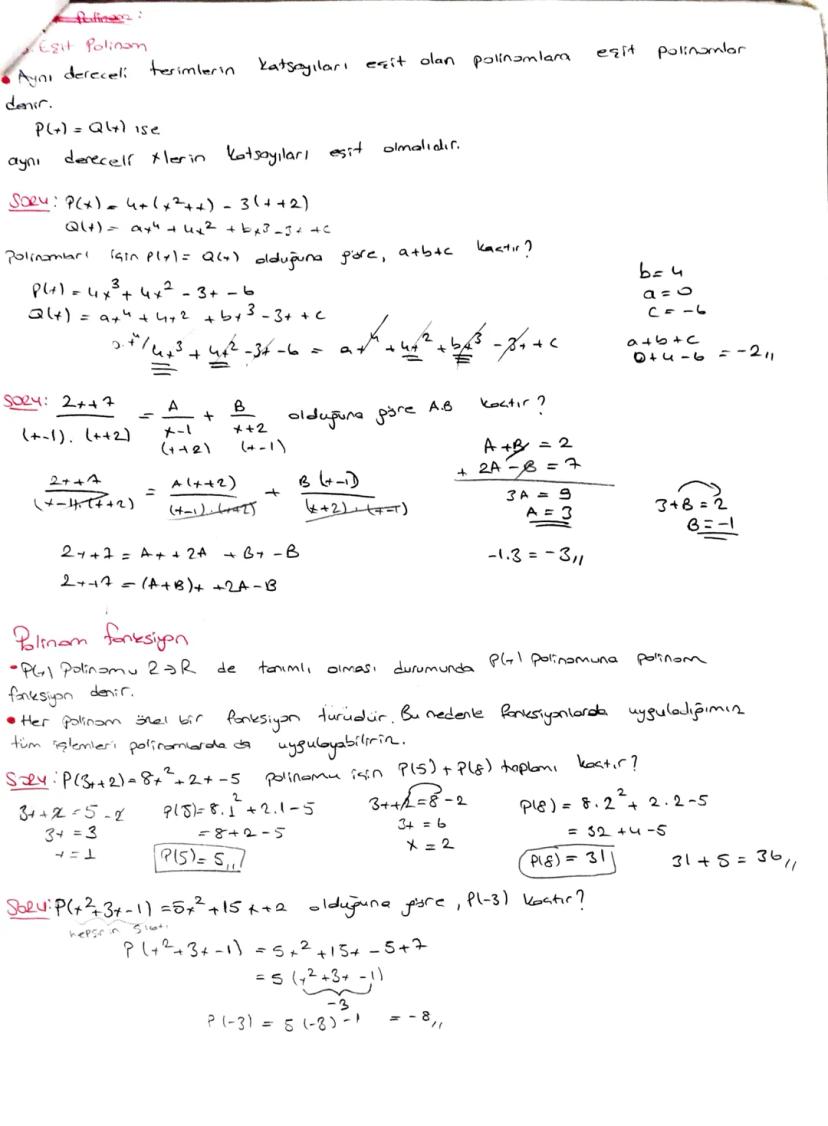 Polinom:
Eşit Polinom
• Aynı dereceli terimlerin katsayıları eşit olan polinomlara eşit polinomlar
denir.
P(x) = Q(x) ise
aynı dereceli xlerin katsayıları eşit olmalıdır.
Soru: P(x) = 4x(x²+x) - 3(x+2)
Q(x) = ax⁴ + 4x² + bx³ - 3x + c
polinomları için P(x) = Q(x) olduğuna göre, a+b+c kaçtır?
P(x) = 4x³ + 4x² - 3x - 6
Q(x) = ax⁴ + 4x² + bx³ - 3x + c
0.x⁴/ 4x³ + 4x² - 3x - 6 = ax⁴ + 4x² + bx³ - 3x + c
b = 4
a = 0
c = -6
a+b+c
0+4-6 = -2,,
Soru: 2x+7 / (x-1).(x+2) = A / x-1 + B / x+2 olduğuna göre A.B kaçtır?
(x+2) (x-1)
2x+7 / (x-1).(x+2) = A(x+2) / (x-1).(x+2) + B(x-1) / (x+2).(x-1)
2x+7 = Ax + 2A + Bx - B
2x+7 = (A+B)x + 2A-B
A+B = 2
+ 2A - B = 7
3A = 9
A = 3
3+B = 2
B = -1
-1.3 = -3,,
Polinom fonksiyon
• P(x) Polinomu R→R de tanımlı olması durumunda P(x) polinomuna polinom
fonksiyon denir.
• Her polinom özel bir fonksiyon türüdür. Bu nedenle fonksiyonlarda uyguladığımız
tüm işlemleri polinomlarda da uygulayabiliriz.
Soru: P(3x+2) = 8x² + 2x - 5 polinomu için P(5) + P(8) toplamı kaçtır?
3x+2 = 5 - 2
3x = 3
x = 1
P(5) = 8.1² + 2.1 - 5
= 8+2-5
P(5) = 5,,
3x+2 = 8 - 2
3x = 6
x = 2
P(8) = 8.2² + 2.2 - 5
= 32 + 4 - 5
P(8) = 31
31 + 5 = 36,,
Soru: P(x²+3x-1) = 5x² + 15x + 2 olduğuna göre, P(-3) kaçtır?
hepsini
P(x²+3x-1) = 5x² + 15x - 5 + 7
= 5(x²+3x-1)
-3
P(-3) = 5(-3) - 1 = -8,,